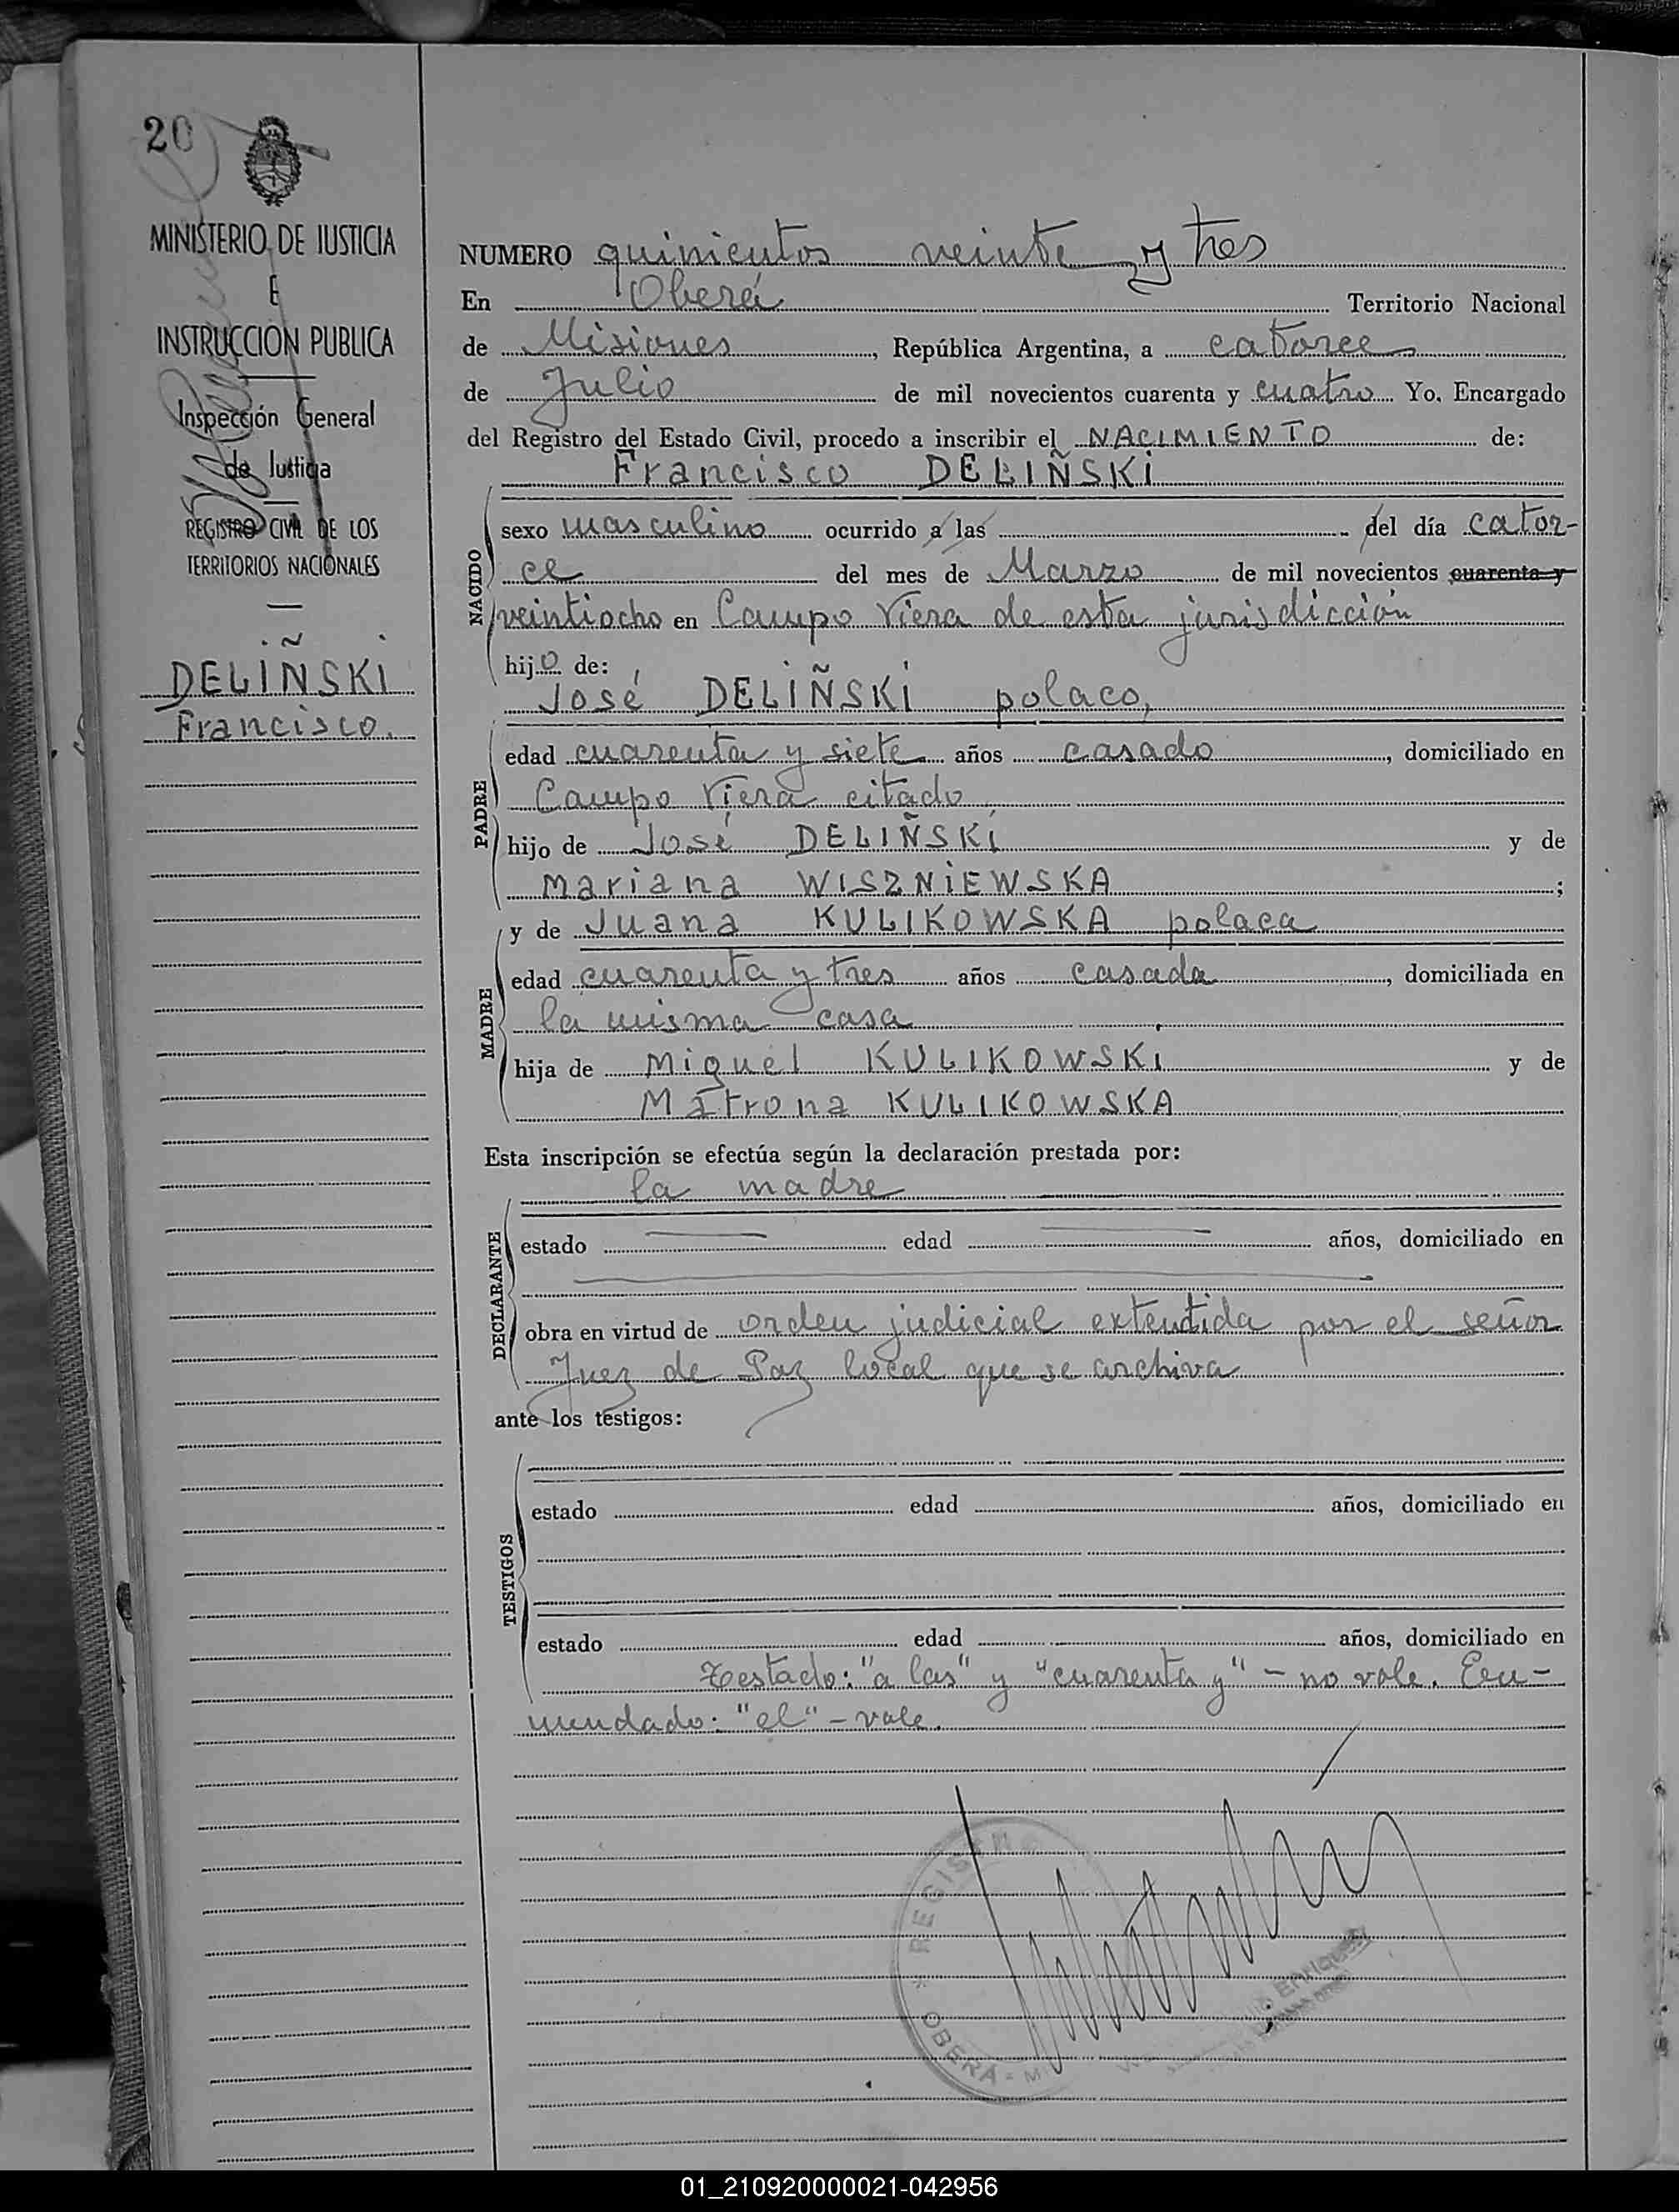 20
MINISTERIO DE JUSTICIA
E
INSTRUCCION PUBLICA
Inspección General
de Justicia
REGISTRO CIVIL DE LOS
TERRITORIOS NACIONALES
DELIÑSKI
Francisco.
NUMERO quinientos veinte y tres
En Oberá Territorio Nacional
de Misiones, República Argentina, a catorce
de Julio de mil novecientos cuarenta y cuatro Yo, Encargado
del Registro del Estado Civil, procedo a inscribir el NACIMIENTO de:
Francisco DELIÑSKI
NACIDO
sexo masculino ocurrido a las del día cator-
ce del mes de Marzo de mil novecientos cuarenta y
veintiocho en Campo Viera de esta jurisdicción
hijo de:
José DELIÑSKI polaco,
PADRE
edad cuarenta y siete años casado, domiciliado en
Campo Viera citado,
hijo de José DELIÑSKI y de
Mariana WISZNIEWSKA;
y de Juana KULIKOWSKA polaca
MADRE
edad cuarenta y tres años casada, domiciliada en
la misma casa
hija de Miguel KULIKOWSKI y de
Matrona KULIKOWSKA
Esta inscripción se efectúa según la declaración prestada por:
la madre
DECLARANTE
estado edad años, domiciliado en
obra en virtud de orden judicial extendida por el señor
Juez de Paz local que se archiva
ante los testigos:
TESTIGOS
estado edad años, domiciliado en
estado edad años, domiciliado en
Testado: "a las" y "cuarenta y" - no vale. En-
mendado: "el" - vale.
REGISTRO
* OBERÁ - M
ENRIQUEZ
01_210920000021-042956